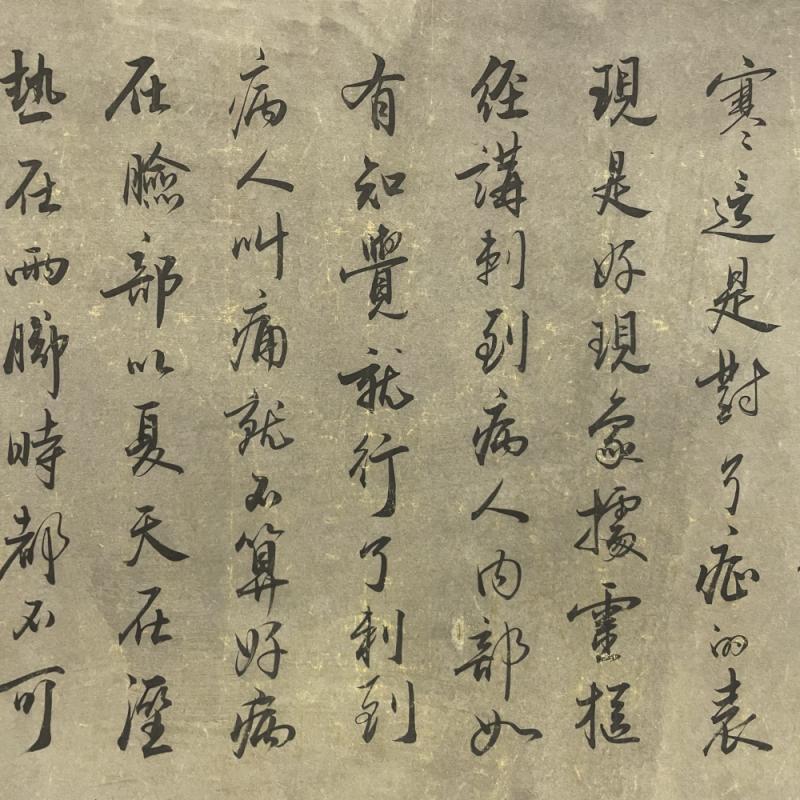 寒這是對了症的表
現是好現象據靈樞
經講刺到病人内部如
有知覺就行了刺到
病人叫痛就不算好病
在臉部以夏天在溼
熱在兩腳時都不可